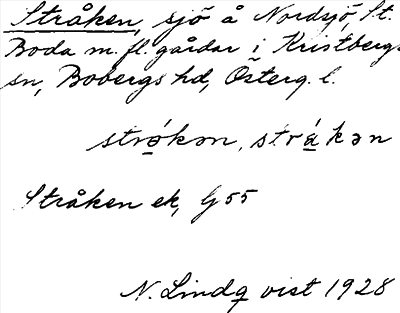 Stråken, sjö å Nordsjö, St.
Boda m. fl. gårdar i Kristbergs
sn, Bobergs hd, Österg. l.
strǫ́kən, strákən
Stråken ek, G 55
N. Lindq vist 1928